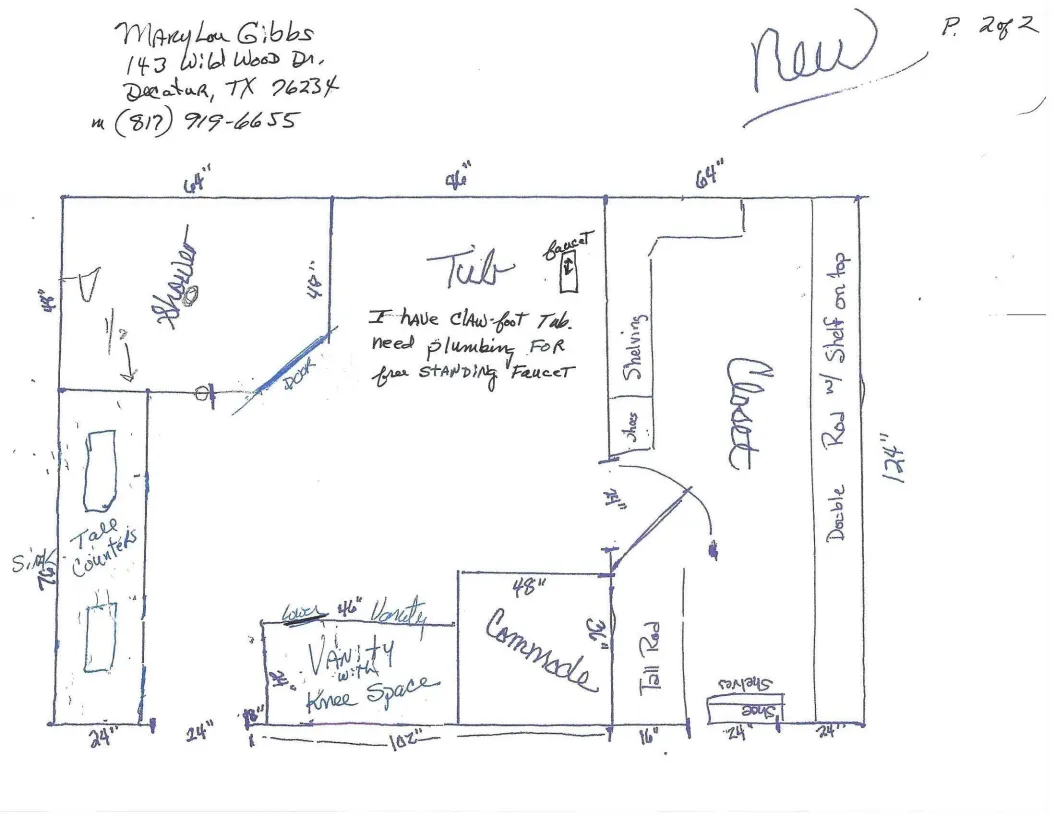 MaryLou Gibbs
143 Wild Wood Dr.
Decatur, TX 76234
m (817) 919-6655
New
P. 2 of 2
64"
96"
64"
48"
Shower
48"
DOOR
Tub
faucet
I HAVE CLAW-foot Tub.
need plumbing FOR
free STANDING Faucet
Shelving
shoes
Closet
Double Rod w/ Shelf on top
124"
24"
Tall
Counters
Sink
76"
48"
Commode
36"
Lower 46" Vanity
VANITY
with
Knee Space
24"
18"
Tall Rod
Shelves
Shoe
24"
24"
102"
16"
24"
24"